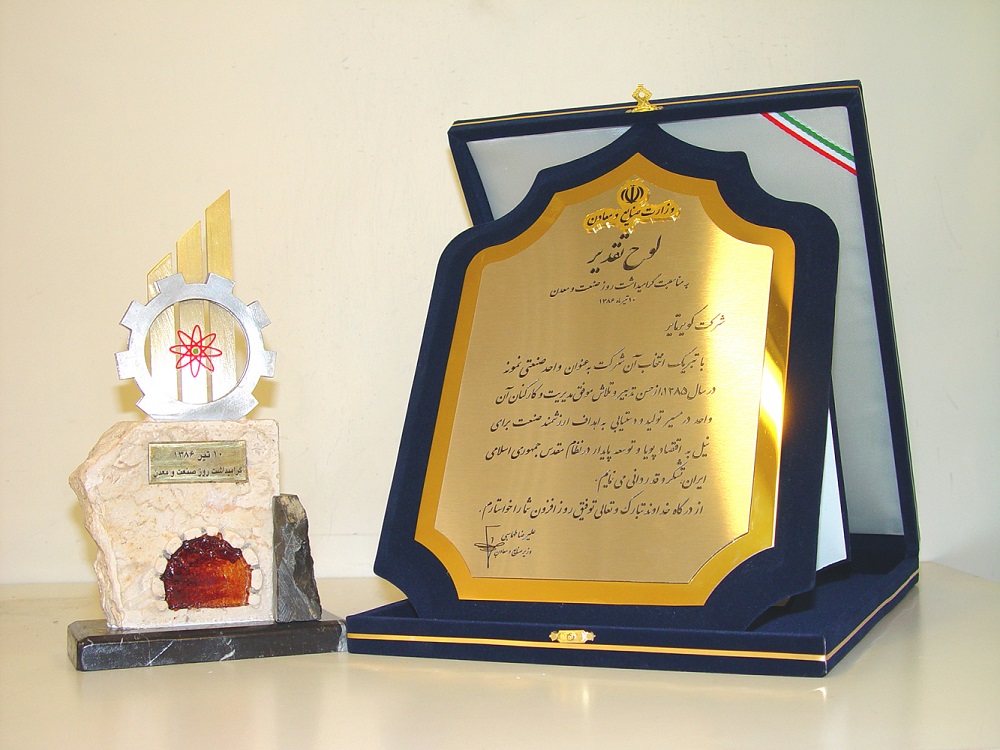 ۱۰ تیر ۱۳۸۶
گرامیداشت روز صنعت و معدن
وزارت صنایع و معادن
لوح تقدیر
به مناسبت گرامیداشت روز صنعت و معدن
۱۰ تیر ماه ۱۳۸۶
شرکت کویر تایر
با تبریک انتخاب آن شرکت به عنوان واحد صنعتی نمونه
در سال ۱۳۸۵، از حسن تدبیر و تلاش موفق مدیریت و کارکنان آن
واحد در مسیر تولید و دستیابی به اهداف ارزشمند صنعت برای
نیل به اقتصاد پویا و توسعه پایدار در نظام مقدس جمهوری اسلامی
ایران تشکر و قدردانی می نمایم.
از درگاه خداوند تبارک و تعالی توفیق روز افزون شما را خواستارم.
علیرضا طهماسبی
وزیر صنایع و معادن